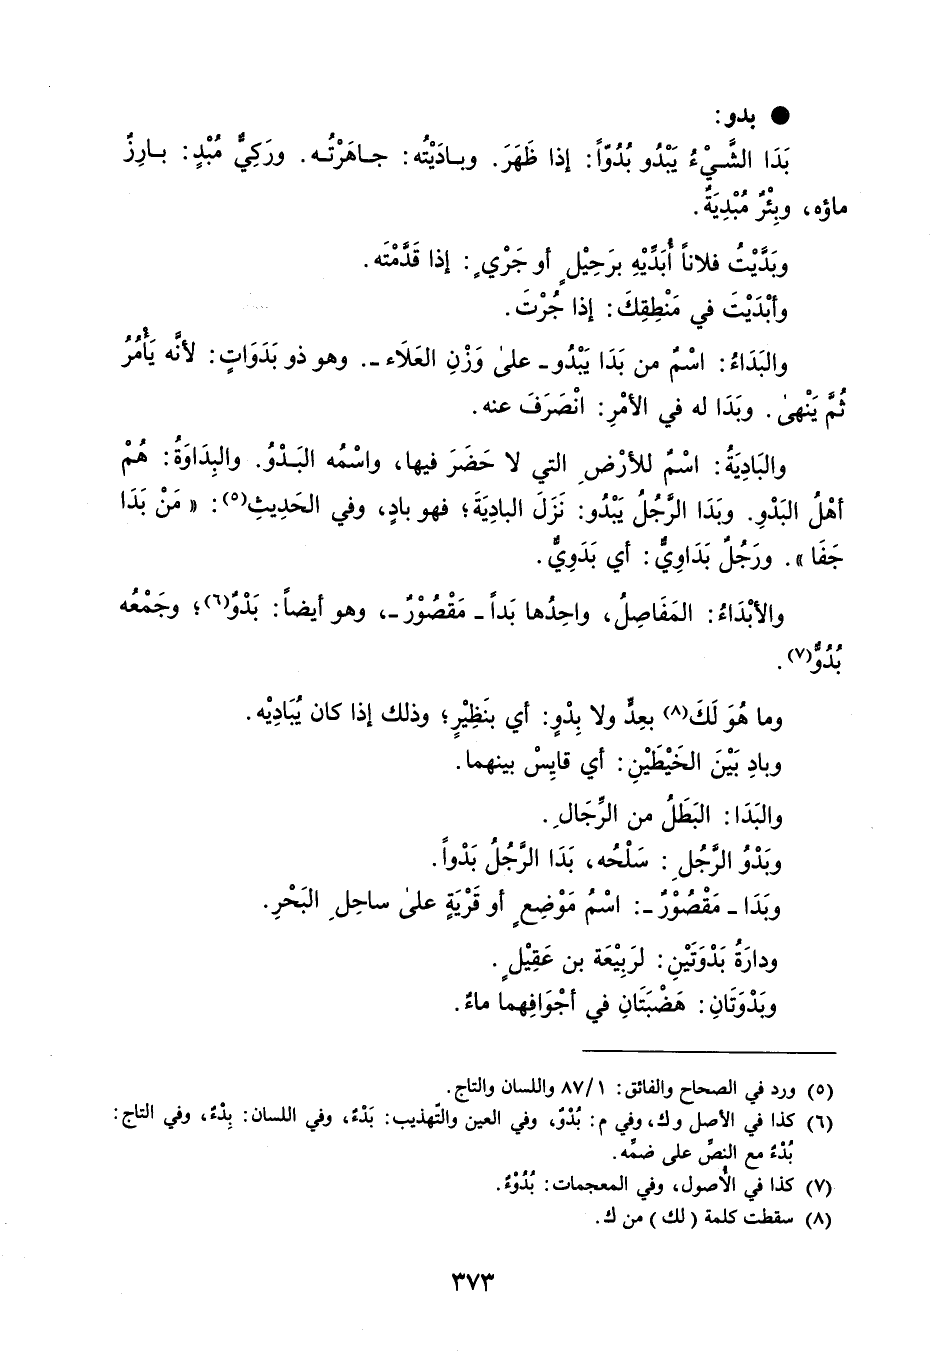 ● بدو:
بَدَا الشَّيْءُ يَبْدُو بُدُوّاً: إذا ظَهَرَ. وبادَيْتُه: جاهَرْتُه. ورَكِيٌّ مُبْدٍ: بارِزٌ
ماؤه، وبِئْرٌ مُبْدِيَةٌ.
وبَدَّيْتُ فلاناً أُبَدِّيْهِ برَحِيْلٍ أو جَرْيٍ: إذا قَدَّمْتَه.
وأبْدَيْتَ في مَنْطِقِكَ: إذا جُرْتَ.
والبَدَاءُ: اسْمٌ من بَدَا يَبْدُو ـ علىٰ وَزْنِ العَلَاء ـ. وهو ذو بَدَوَاتٍ: لأنَّه يَأْمُرُ
ثُمَّ يَنْهىٰ. وبَدَا له في الأمْرِ: انْصَرَفَ عنه.
والبَادِيَةُ: اسْمٌ للأرْضِ التي لا حَضَرَ فيها، واسْمُه البَدْوُ. والبِدَاوَةُ: هُمْ
أهْلُ البَدْوِ. وبَدَا الرَّجُلُ يَبْدُو: نَزَلَ البادِيَةَ؛ فهو بادٍ، وفي الحَدِيثِ(٥): « مَنْ بَدَا
جَفَا ». ورَجُلٌ بَدَاوِيٌّ: أي بَدَوِيٌّ.
والأبْدَاءُ: المَفَاصِلُ، واحِدُها بَداً ـ مَقْصُوْرٌ ـ، وهو أيضاً: بَدْوٌ(٦)؛ وجَمْعُه
بُدُوٌّ(٧).
وما هُوَ لَكَ(٨) بعِدٍّ ولا بِدْوٍ: أي بنَظِيْرٍ؛ وذلك إذا كان يُبَادِيْه.
وبادِ بَيْنَ الخَيْطَيْنِ: أي قايِسْ بينهما.
والبَدَا: البَطَلُ من الرِّجَالِ.
وبَدْوُ الرَّجُلِ: سَلْحُه، بَدَا الرَّجُلُ بَدْواً.
وبَدَا ـ مَقْصُوْرٌ ـ: اسْمُ مَوْضِعٍ أو قَرْيَةٍ علىٰ ساحِلِ البَحْرِ.
ودارَةُ بَدْوَتَيْنِ: لرَبِيْعَة بن عَقِيْلٍ.
وبَدْوَتَانِ: هَضْبَتَانِ في أجْوَافِهما ماءٌ.
(٥) ورد في الصحاح والفائق: ٨٧/١ واللسان والتاج.
(٦) كذا في الأصل وك، وفي م: بُدْوٌ، وفي العين والتّهذيب: بَدْءٌ، وفي اللسان: بِدْءٌ، وفي التاج:
بُدْءٌ مع النصِّ على ضمِّه.
(٧) كذا في الأُصول، وفي المعجمات: بُدُوْءٌ.
(٨) سقطت كلمة ( لك ) من ك.
٣٧٣